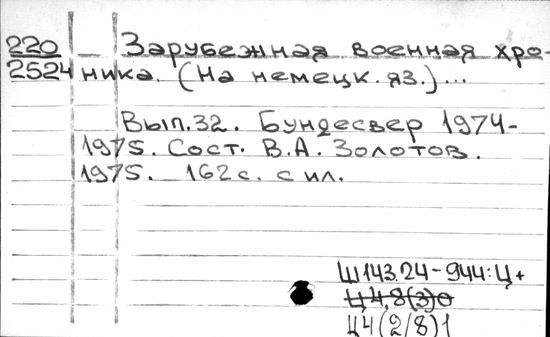 220 Зарубежная военная хро-
2524 ника. (На немецк. яз.)...
Вып.32. Бундесвер 1974-
1975. Сост. В.А. Золотов.
1975. 162с. с ил.
Ш143.24-944:Ц+
Ц4,8(3)0
Ц4(2/8)1